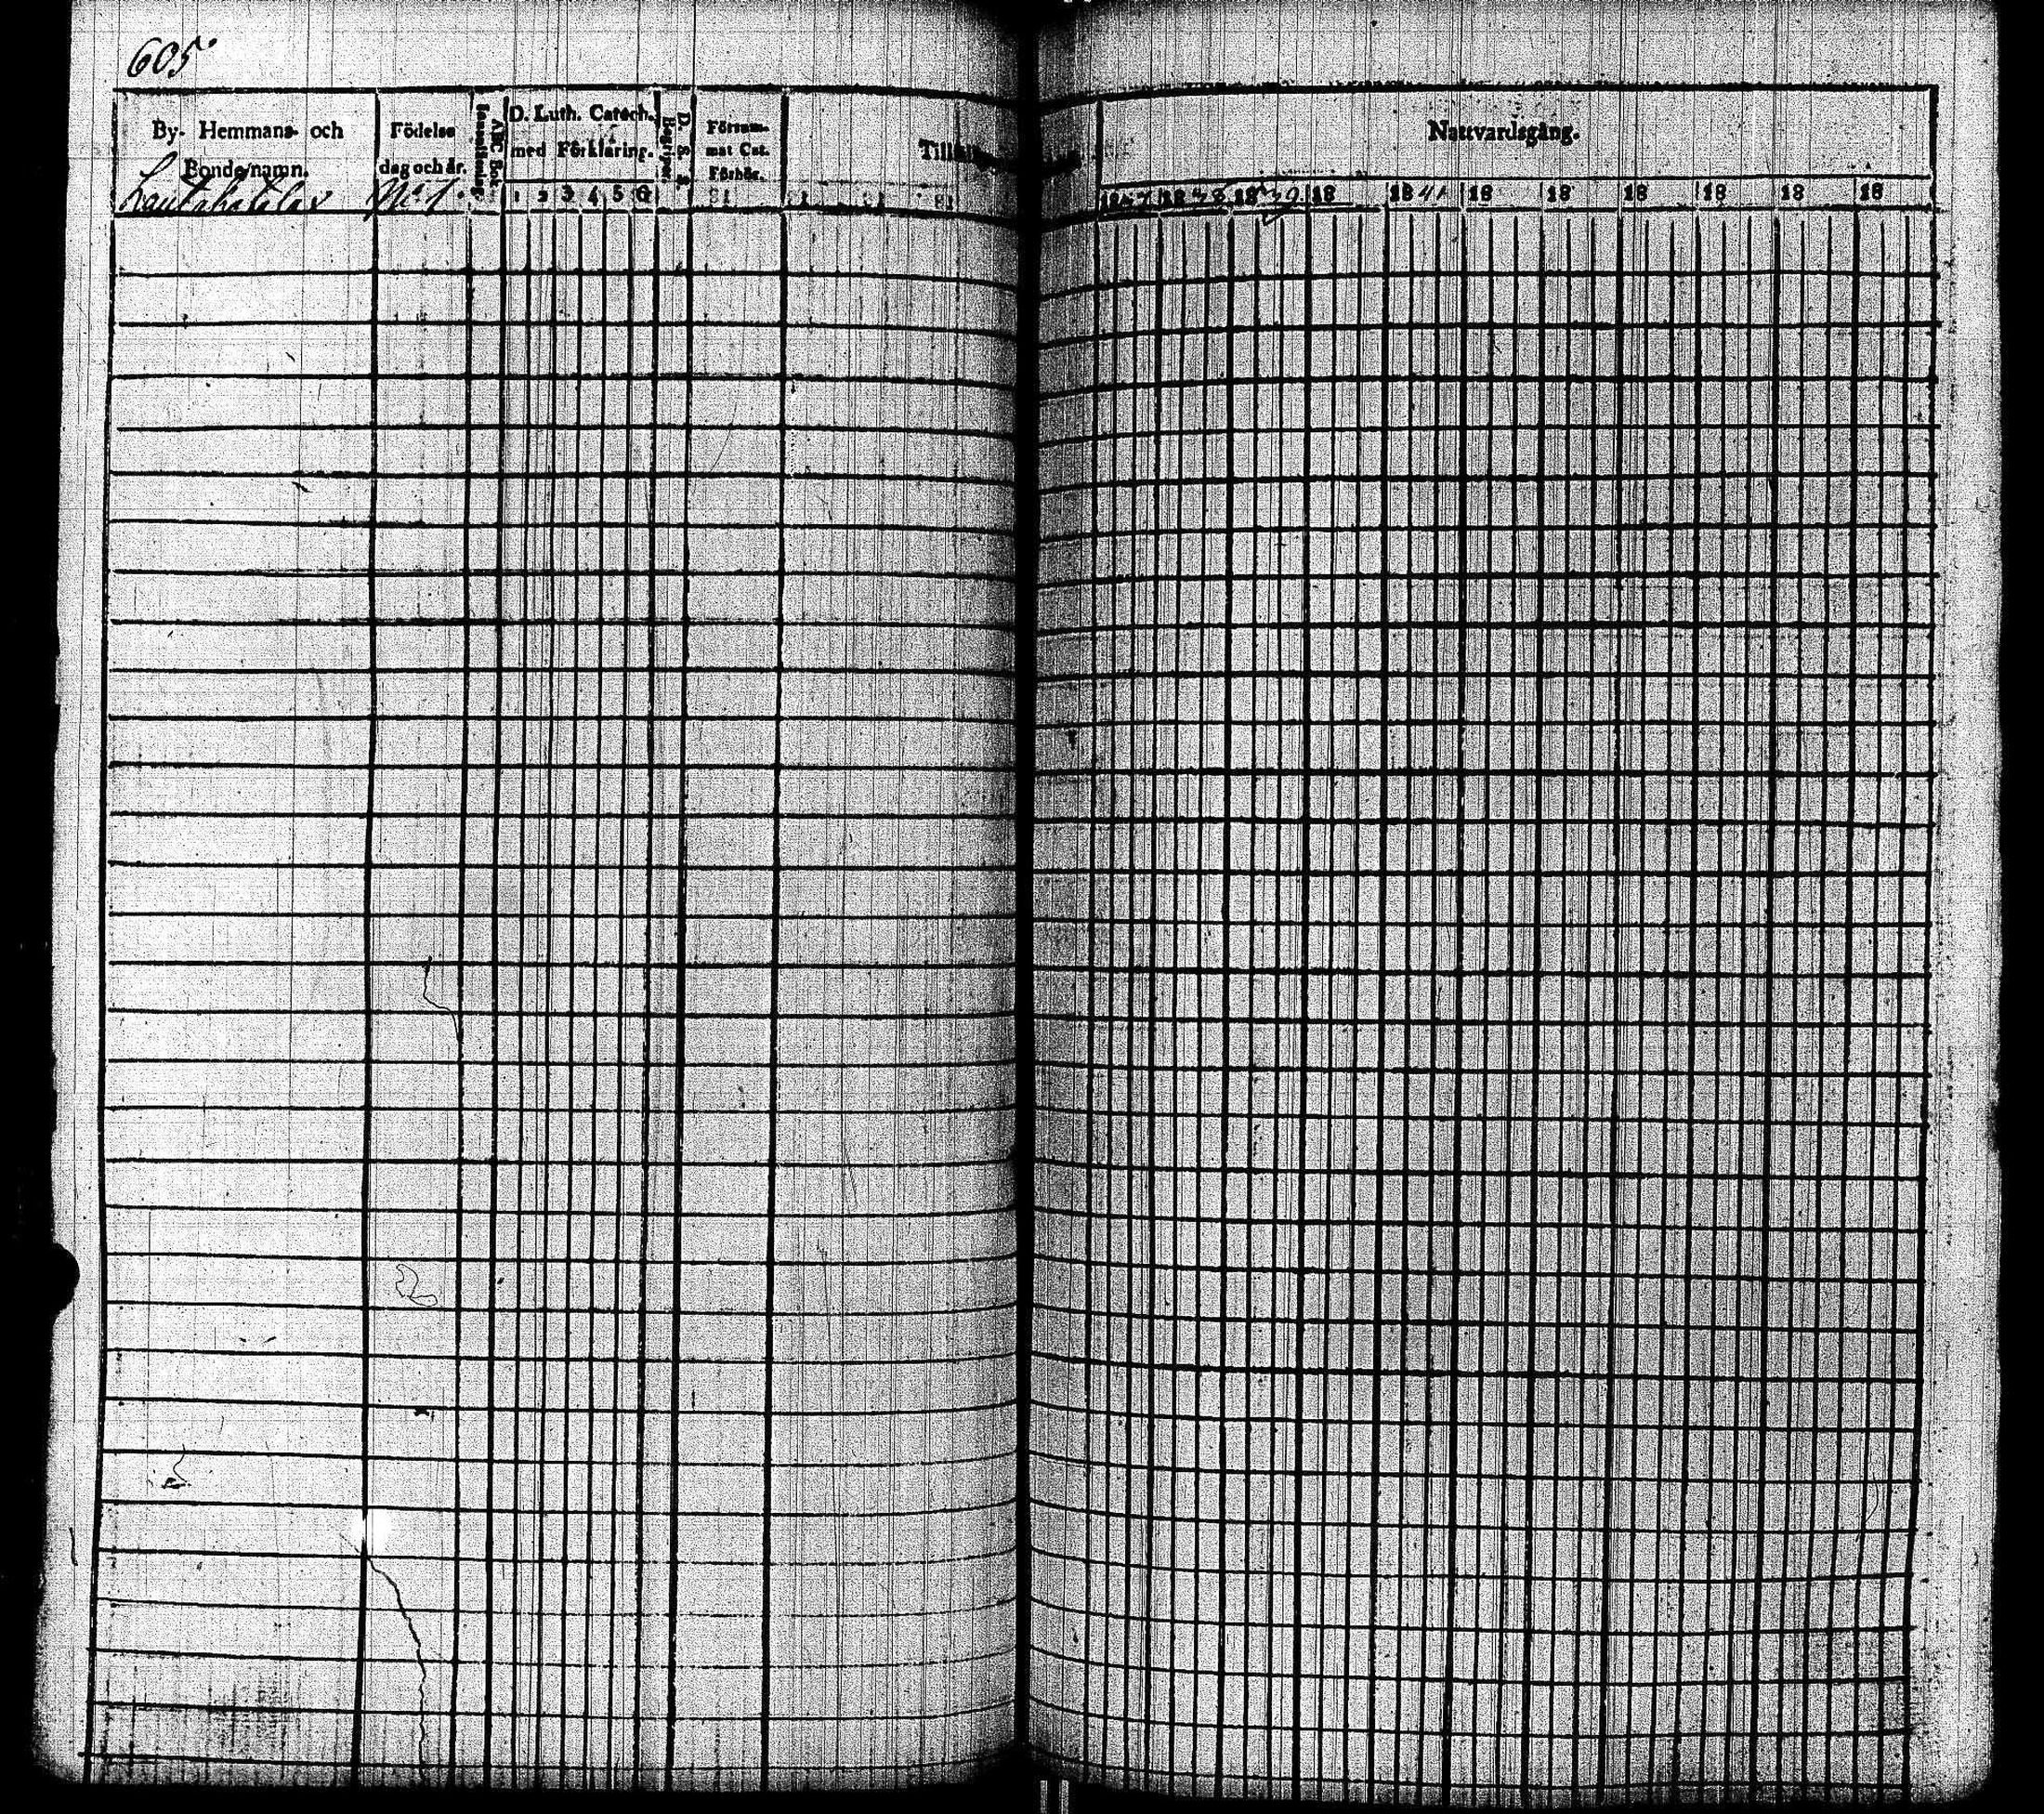 605
By- Hemmans- och Bondenamn.
Födelse dag och år.
ABC Bok
D. Luth. Catech. med Förklaring.
1 2 3 4 5 6
Begriper.
D. S. S.
Försum-
mat Cat.
Förhör.
Lautakatila No 1.
Nattvardsgång.
1837 1838 1839 18 1841 18 18 18 18 18 18